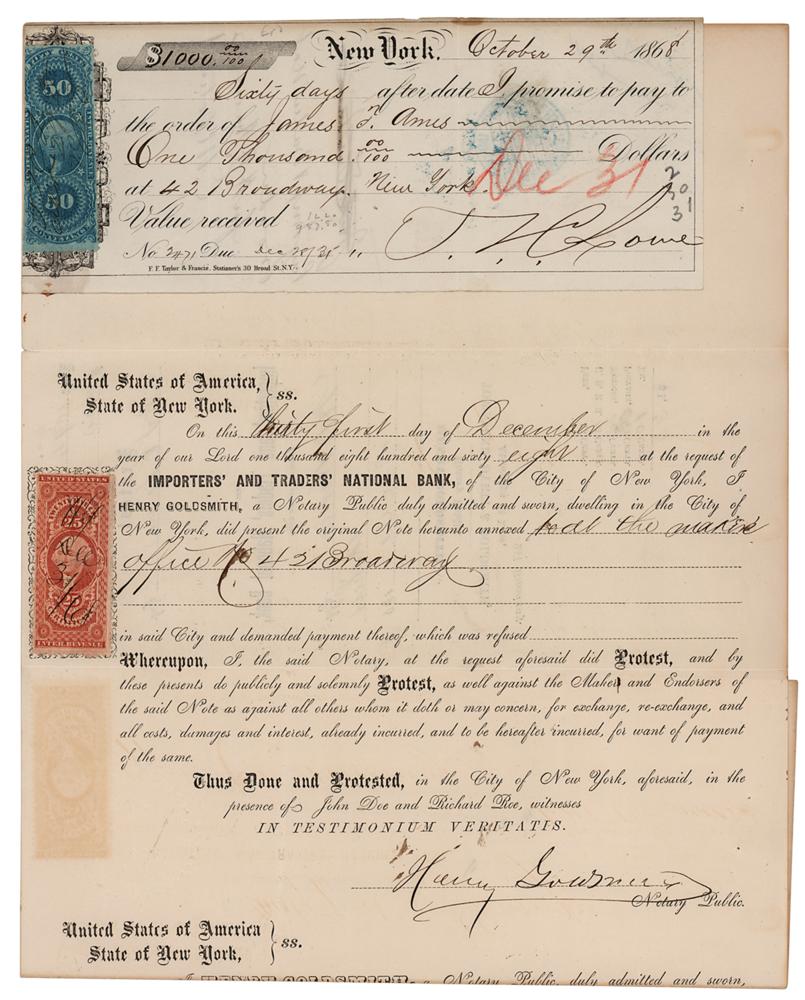 $1000. 00/100 New York. October 29th 1868
Sixty days after date I promise to pay to
the order of James T. Ames
One Thousand 00/100 Dollars
at 42 Broadway New York.
Dec 31
Value received
2
30
31
No 2471 Due Dec 28/31
T. S. C. Lowe
F. F. Taylor & Francis, Stationer's 30 Broad St. N.Y.
50
50
CONVEYANCE
United States of America,
State of New York. } ss.
On this thirty first day of December in the
year of our Lord one thousand eight hundred and sixty eight at the request of
the IMPORTERS' AND TRADERS' NATIONAL BANK, of the City of New York, I
HENRY GOLDSMITH, a Notary Public duly admitted and sworn, dwelling in the City of
New York, did present the original Note hereunto annexed at the maker's
office No 42 Broadway
in said City and demanded payment thereof, which was refused
Whereupon, I, the said Notary, at the request aforesaid did Protest, and by
these presents do publicly and solemnly Protest, as well against the Maker and Endorsers of
the said Note as against all others whom it doth or may concern, for exchange, re-exchange, and
all costs, damages and interest, already incurred, and to be hereafter incurred, for want of payment
of the same.
Thus Done and Protested, in the City of New York, aforesaid, in the
presence of John Doe and Richard Roe, witnesses
IN TESTIMONIUM VERITATIS.
Henry Goldsmith
Notary Public.
UNITED STATES
25
25
INTER. REVENUE
United States of America
State of New York, } ss.
I, HENRY GOLDSMITH, a Notary Public, duly admitted and sworn,